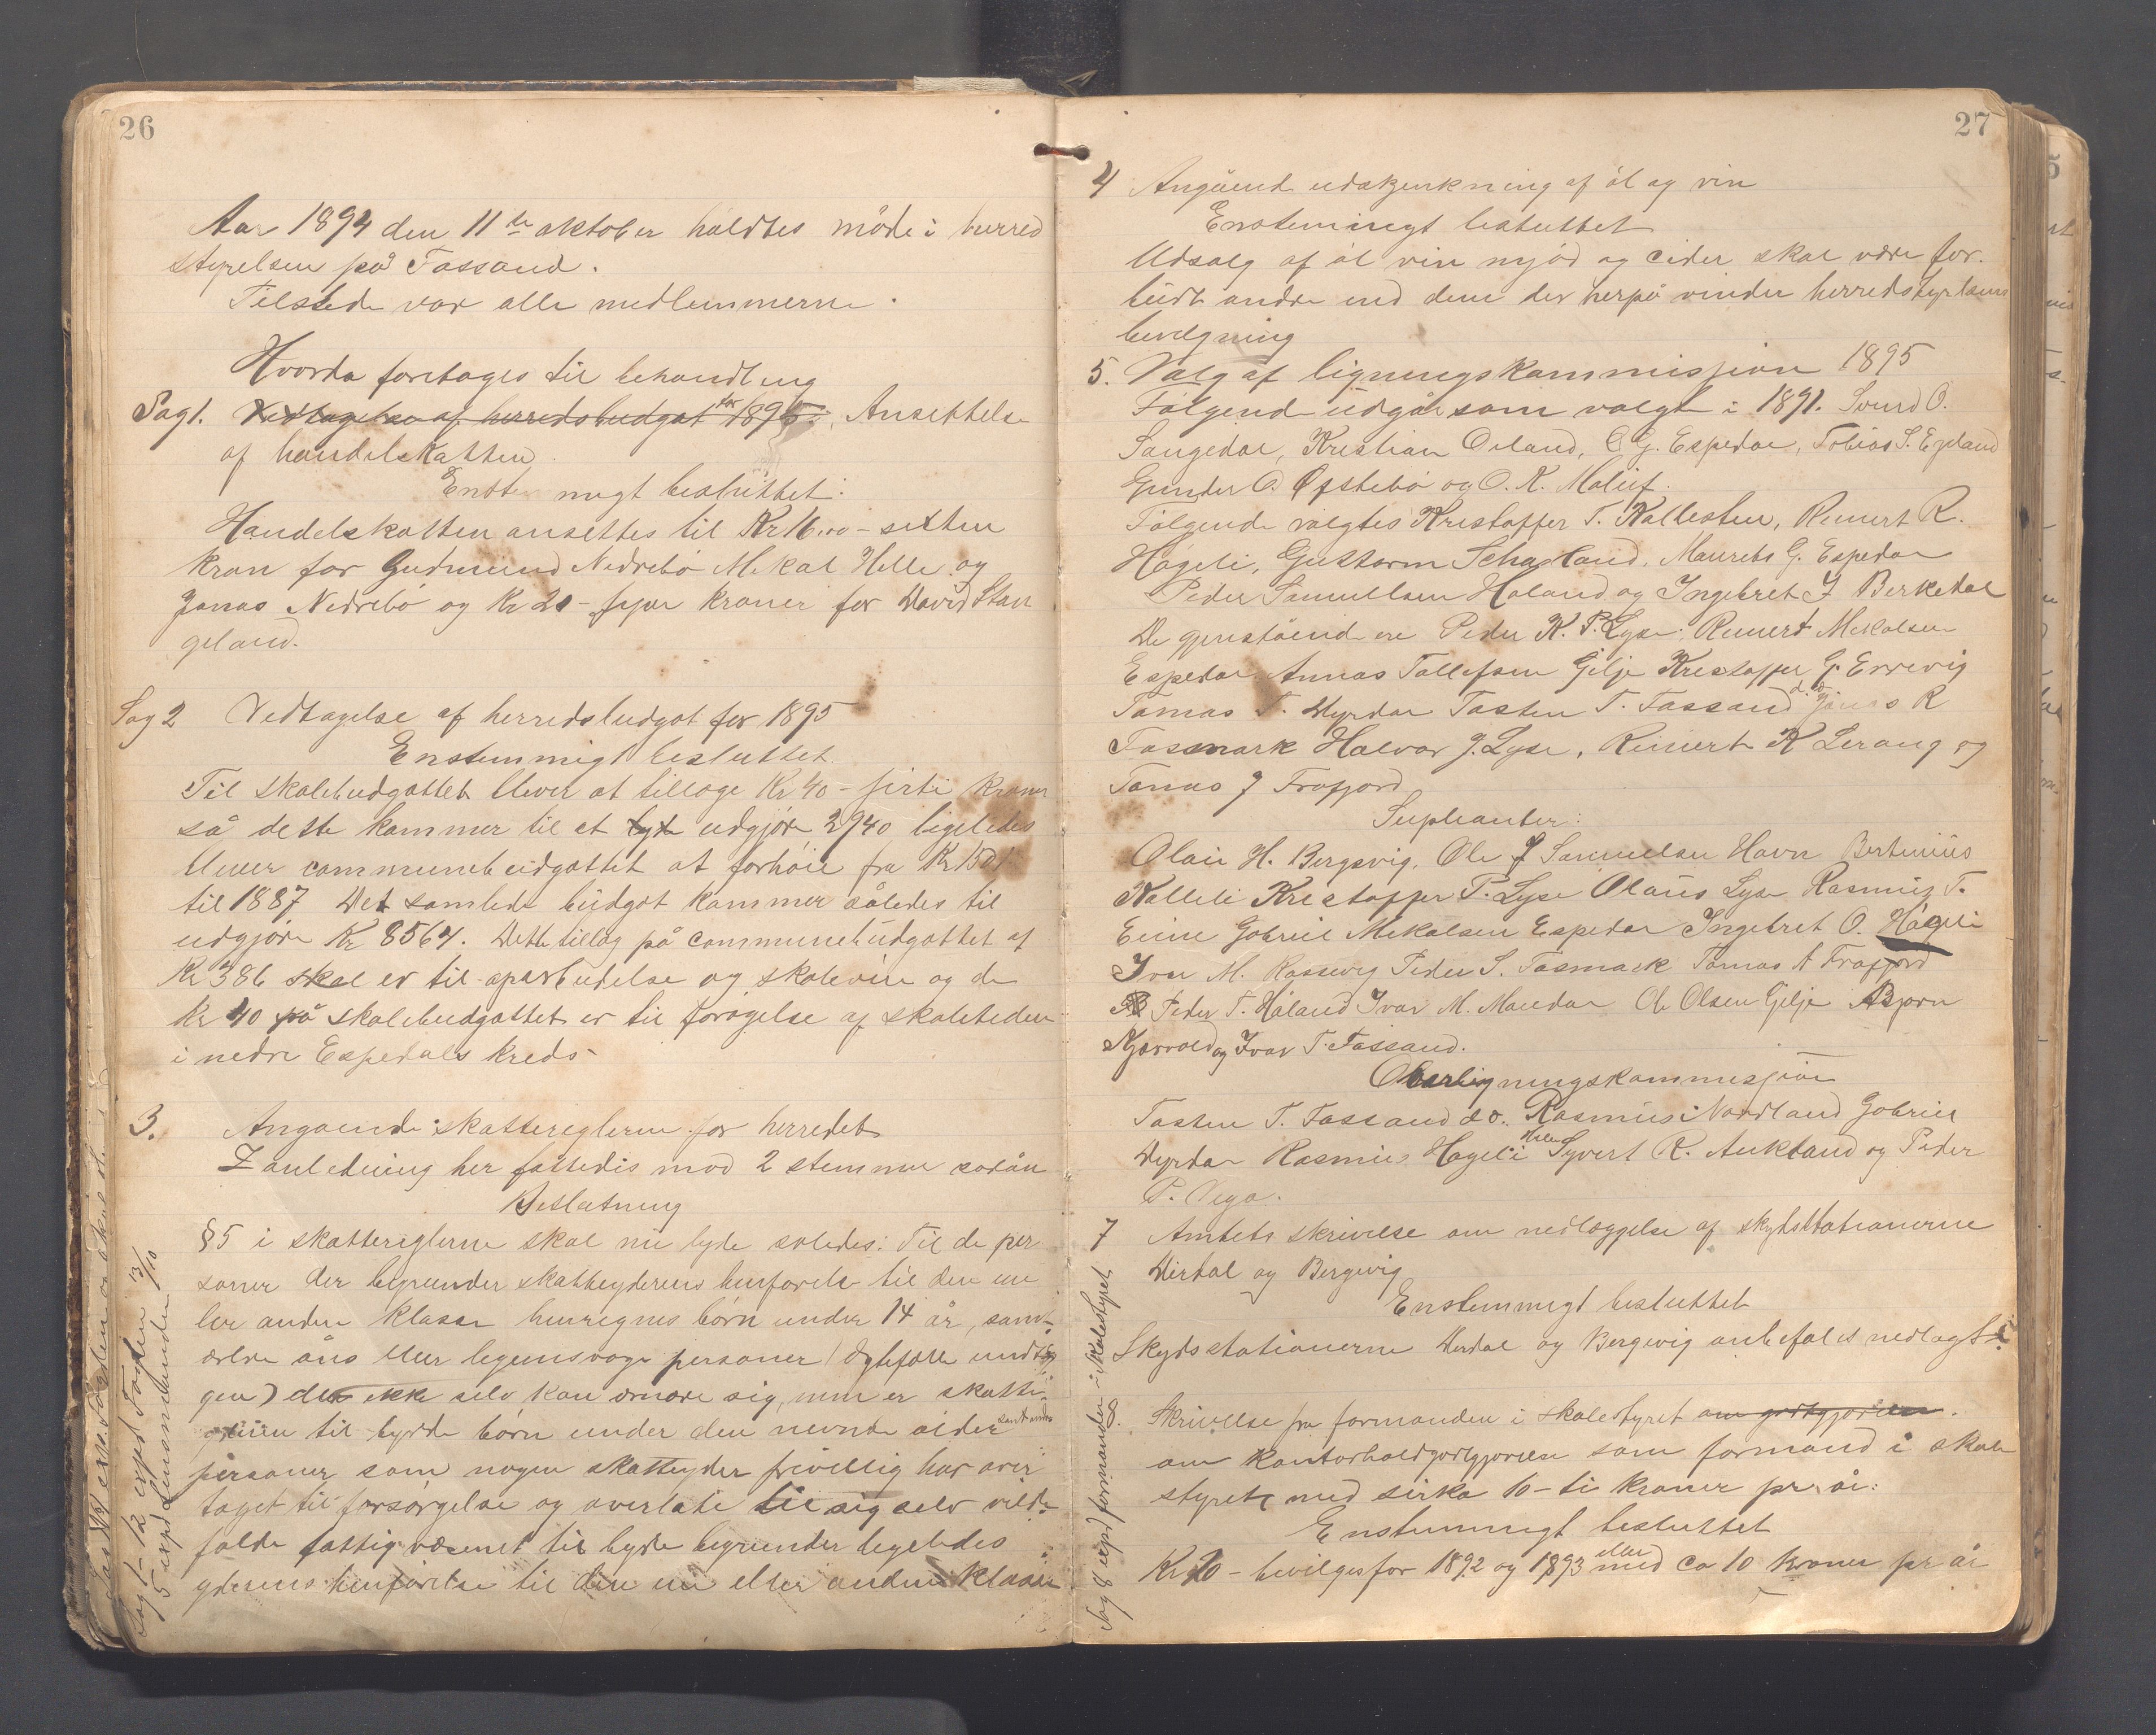 26
Aar 1894 den 11te oktober holdtes möde i herred
styrelsen på Fossand.
Tilstede var alle medlemmerne.
Hvorda foretoges til behandling
Sag 1. Vedtagelse af herredsbudgat for 1895. Ansettelse
af handelskatten
Enstemmigt besluttet:
Handelskatten ansettes til Kr 16.00 - seksten
kron for Gudmund Nedrebö Mikal Helle og
Jonas Nedrebö og Kr 20 - kroner for David Stan
geland.
Sag 2 Vedtagelse af herredsbudgat for 1895
Enstemmigt besluttet.
Til skolebudgattet blever at tillage Kr 40 - firti kroner
så dette kommer til at udgjöre 2940 ligeledes
blever communebudgattet at forhöie fra Kr 1501
til 1887 Det samlede budgat kommer således til
udgjöre Kr 8564. Dette tillæg på communebudgattet af
Kr 386 skal er til oparbudelse og skolevin og de
Kr 40 på skolebudgattet er til forögelse af skoletiden
i nedre Espedals kreds
3. Angaaende skattereglerne for herredet
I anledning her fattedis mod 2 stemmer sodån
Beslutning
§5 i skattereglerne skal nu lyde soledes: Til de per
soner der begrunder skatteyderens henförelse til den en
ler anden klasse henregnes börn under 14 år, samt
ældre åns eller legemsvage personer (Ægtefolle undta
gen) der ikke selv kan ernære sig, men er skatte
yderen til byrde börn under den nevnte alder samt andre
personer som nogen skatteyder frivillig har over
taget til forsörgelse og overlate til sig selv vilde
falde fattigvæsenet til byrde begrunder ligeledes
yderens henförelse til den en eller anden klasse
Sag 1-12 exped Fogden 13/10
5 exped Lensmanden 13/10
27
4 Angående udskjenkning af öl og vin
Enstemingt besluttet
Udsalg af öl vin mjöd og cider skal være for-
budt andre end dem der herpå vinder herredstyrelsens
bevilgning
5. Valg af ligningskommissjion 1895
Fölgende udgår som valgte i 1891. Svend O.
Sangedal, Kristian Oeland, O G. Espedal, Tobias S. Egeland
Gunder O. Öfstebö og O. K. Molief.
Fölgende valgtes Kristoffer T. Kallesten, Reinert R.
Hågeli, Guttorm Schadland, Maurits G. Espedal
Peder Samuelsen Håland og Ingebret I Berkedal
De gjenstående ere Peder K. P. Lyse. Reinert Mikalsen
Espedal Annas Tallefsen Gilje Kristoffer G. Errevig
Tomas T. Dyrdal Tosten T. Fossand d. o Jonas R
Fosmark Halvor J. Lyse, Reinert K Lerang og
Tomas J Frafjord
Supleanter:
Olaii H. Bergsvig, Ole J Samuelsen Havn Bertinius
Kalleli Kristoffer P. Lyse Olaus Lyse Rasmus T.
Eiine Gabriel Mikalsen Espedal Ingebret O. Hågeli
Ivar M. Rossevig Peder S. Fosmark Tomas A Frafjord
Peder T. Håland Ivar M. Maudal Ole Olsen Gilje Asbjørn
Kjosvold og Ivar T. Fossand.
Oberligningskommissjion
Tosten T. Fossand d o. Rasmus Nordland Gabriel
Dyrdal Rasmus Hageli Helle Syvert R. Aukland og Peder
P. Vega.
7 Amtets skrivelse om nedleggelse af skydsstationerne
Dirdal og Bergevig
Enstemmigt besluttet
Skydsstationerne Dirdal og Bergevig anbefales nedlagte
8. Skrivelse fra formanden i skolestyret om godtgjörelse.
om kontorholdgodtgjörelse som formand i skole
styret med sirka 10 - ti kroner pr år:
Enstemmigt besluttet
Kr 20 - bevilges for 1892 og 1893 eller med ca 10 kroner pr år
Sag 8 exped formanden i skolestyret